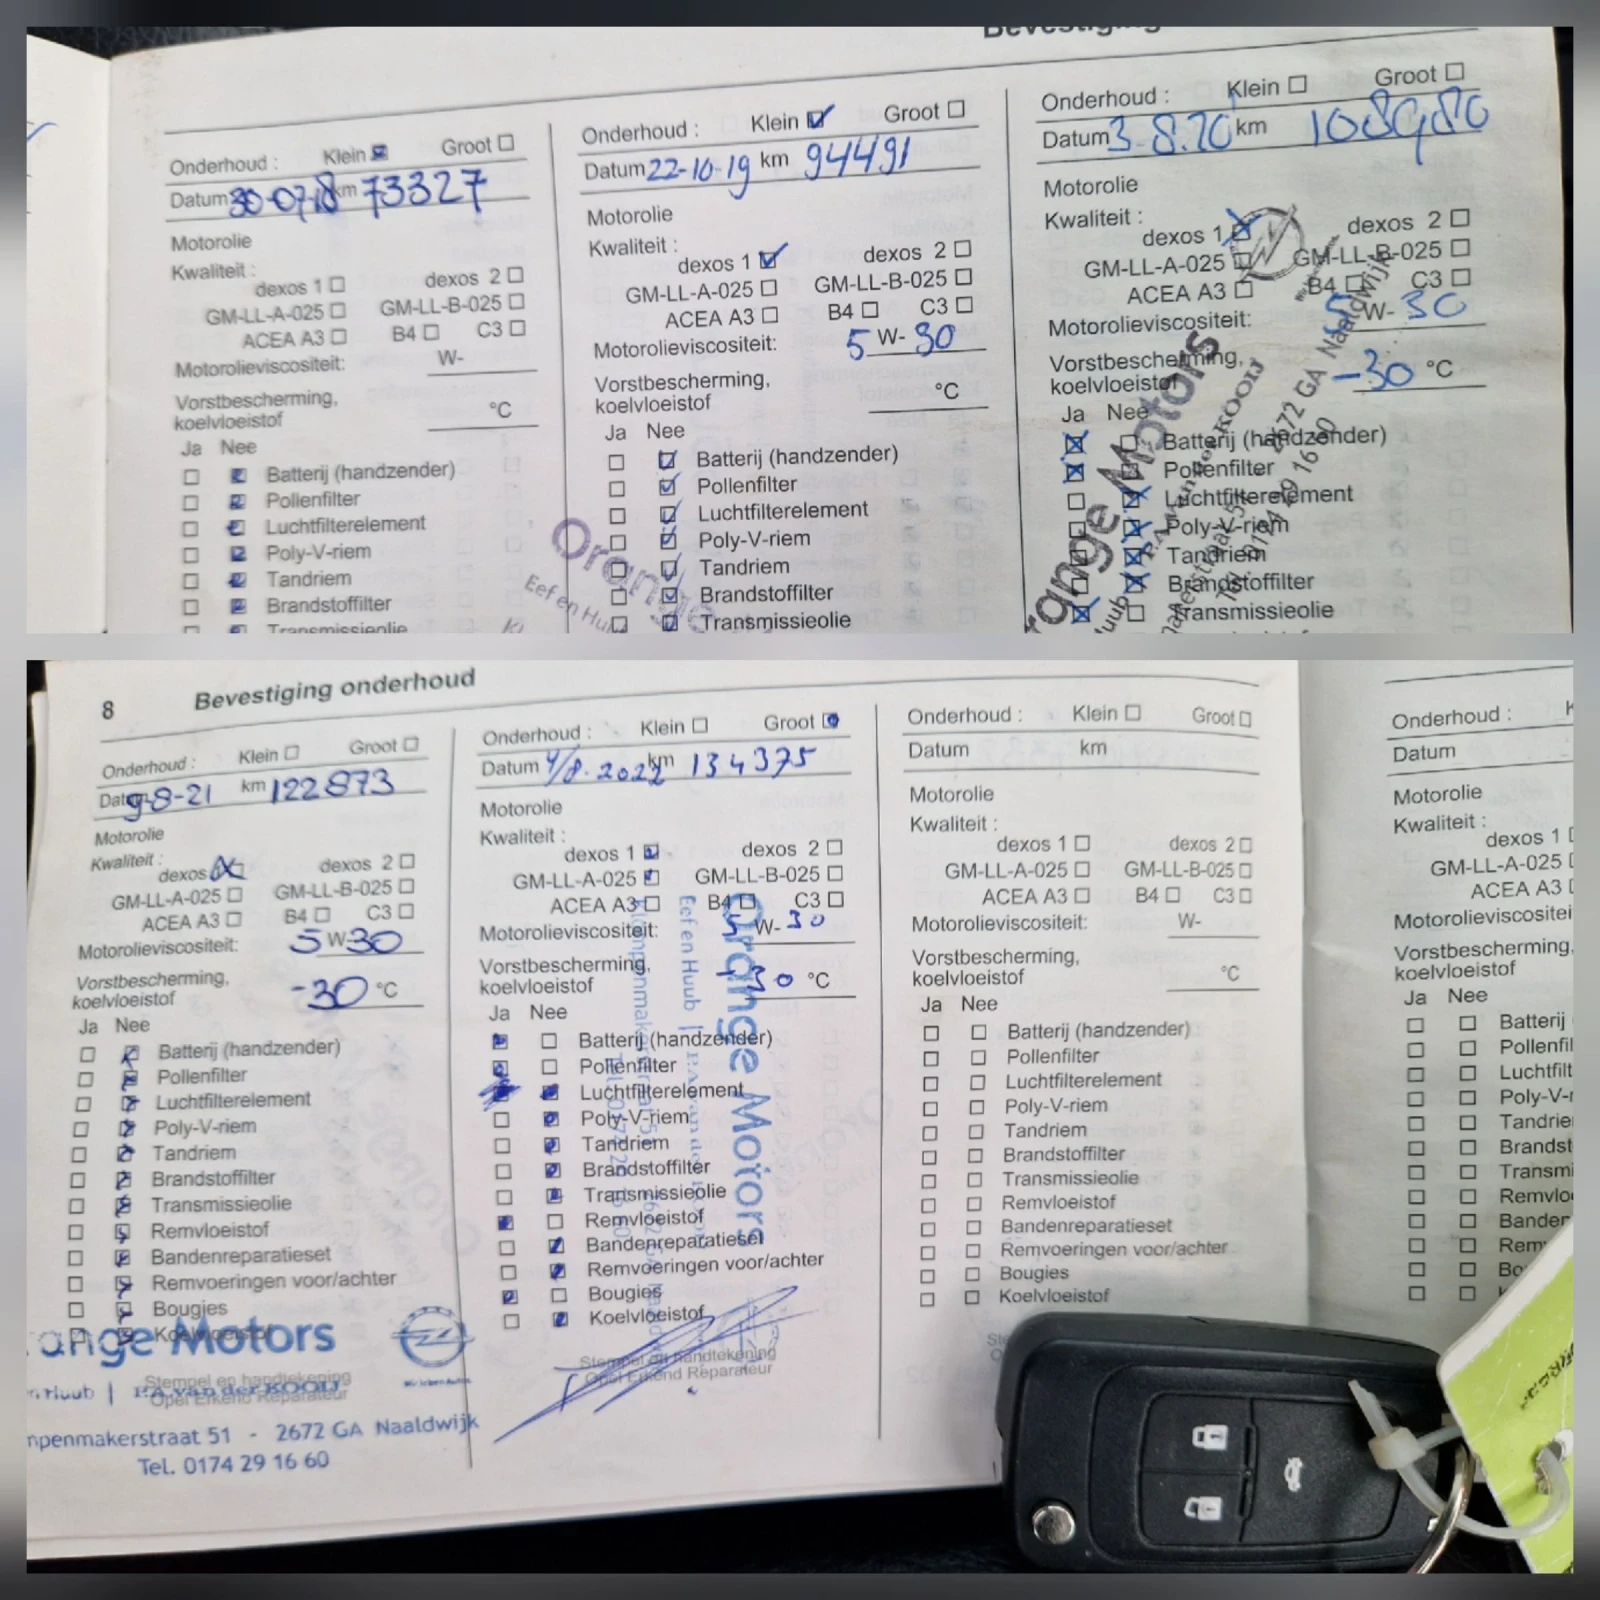 Onderhoud : Klein Groot
Datum 30-07-18 km 73327
Motorolie
Kwaliteit :
dexos 1 dexos 2
GM-LL-A-025 GM-LL-B-025
ACEA A3 B4 C3
Motorolieviscositeit: W-
Vorstbescherming,
koelvloeistof °C
Ja Nee
Batterij (handzender)
Pollenfilter
Luchtfilterelement
Poly-V-riem
Tandriem
Brandstoffilter
Transmissieolie
Onderhoud : Klein Groot
Datum 22-10-19 km 94491
Motorolie
Kwaliteit :
dexos 1 dexos 2
GM-LL-A-025 GM-LL-B-025
ACEA A3 B4 C3
Motorolieviscositeit: 5 W- 30
Vorstbescherming,
koelvloeistof °C
Ja Nee
Batterij (handzender)
Pollenfilter
Luchtfilterelement
Poly-V-riem
Tandriem
Brandstoffilter
Transmissieolie
Orange
Eef en Huu
Bevestiging
Onderhoud : Klein Groot
Datum 3-8.20 km 108980
Motorolie
Kwaliteit :
dexos 1 dexos 2
GM-LL-A-025 GM-LL-B-025
ACEA A3 B4 C3
Motorolieviscositeit: 5 W- 30
Vorstbescherming,
koelvloeistof -30 °C
Ja Nee
Batterij (handzender)
Pollenfilter
Luchtfilterelement
Poly-V-riem
Tandriem
Brandstoffilter
Transmissieolie
range Motors
KOOIJ
2672 GA Naaldwijk
8 Bevestiging onderhoud
Onderhoud : Klein Groot
Datum 9-8-21 km 122873
Motorolie
Kwaliteit :
dexos dexos 2
GM-LL-A-025 GM-LL-B-025
ACEA A3 B4 C3
Motorolieviscositeit: 5 W- 30
Vorstbescherming,
koelvloeistof -30 °C
Ja Nee
Batterij (handzender)
Pollenfilter
Luchtfilterelement
Poly-V-riem
Tandriem
Brandstoffilter
Transmissieolie
Remvloeistof
Bandenreparatieset
Remvoeringen voor/achter
Bougies
Koelvloeistof
ange Motors
Stempel en handtekening
n Huub | P.A. van der KOOIJ
Opel Erkend Reparateur
mpenmakerstraat 51 - 2672 GA Naaldwijk
Tel. 0174 29 16 60
Onderhoud : Klein Groot
Datum 4/8.2022 km 134375
Motorolie
Kwaliteit :
dexos 1 dexos 2
GM-LL-A-025 GM-LL-B-025
ACEA A3 B4 C3
Motorolieviscositeit: 5 W- 30
Vorstbescherming,
koelvloeistof -30 °C
Ja Nee
Batterij (handzender)
Pollenfilter
Luchtfilterelement
Poly-V-riem
Tandriem
Brandstoffilter
Transmissieolie
Remvloeistof
Bandenreparatieset
Remvoeringen voor/achter
Bougies
Koelvloeistof
Stempel en handtekening
Opel Erkend Reparateur
Orange Motors
Eef en Huub |
Onderhoud : Klein Groot
Datum km
Motorolie
Kwaliteit :
dexos 1 dexos 2
GM-LL-A-025 GM-LL-B-025
ACEA A3 B4 C3
Motorolieviscositeit: W-
Vorstbescherming,
koelvloeistof °C
Ja Nee
Batterij (handzender)
Pollenfilter
Luchtfilterelement
Poly-V-riem
Tandriem
Brandstoffilter
Transmissieolie
Remvloeistof
Bandenreparatieset
Remvoeringen voor/achter
Bougies
Koelvloeistof
Onderhoud : K
Datum
Motorolie
Kwaliteit :
dexos 1
GM-LL-A-025
ACEA A3
Motorolieviscositei
Vorstbescherming,
koelvloeistof
Ja Nee
Batterij
Pollenfil
Luchtfilt
Poly-V-r
Tandrie
Brandst
Transmi
Remvlo
Banden
Remv
Bo